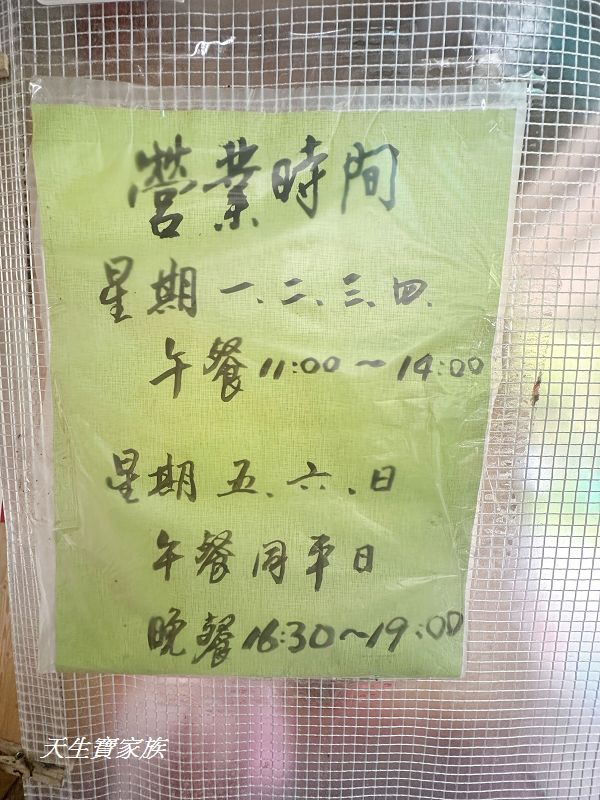 營業時間
星期一、二、三、四、
午餐11:00~14:00
星期五、六、日
午餐同平日
晚餐16:30~19:00
天生寶家族